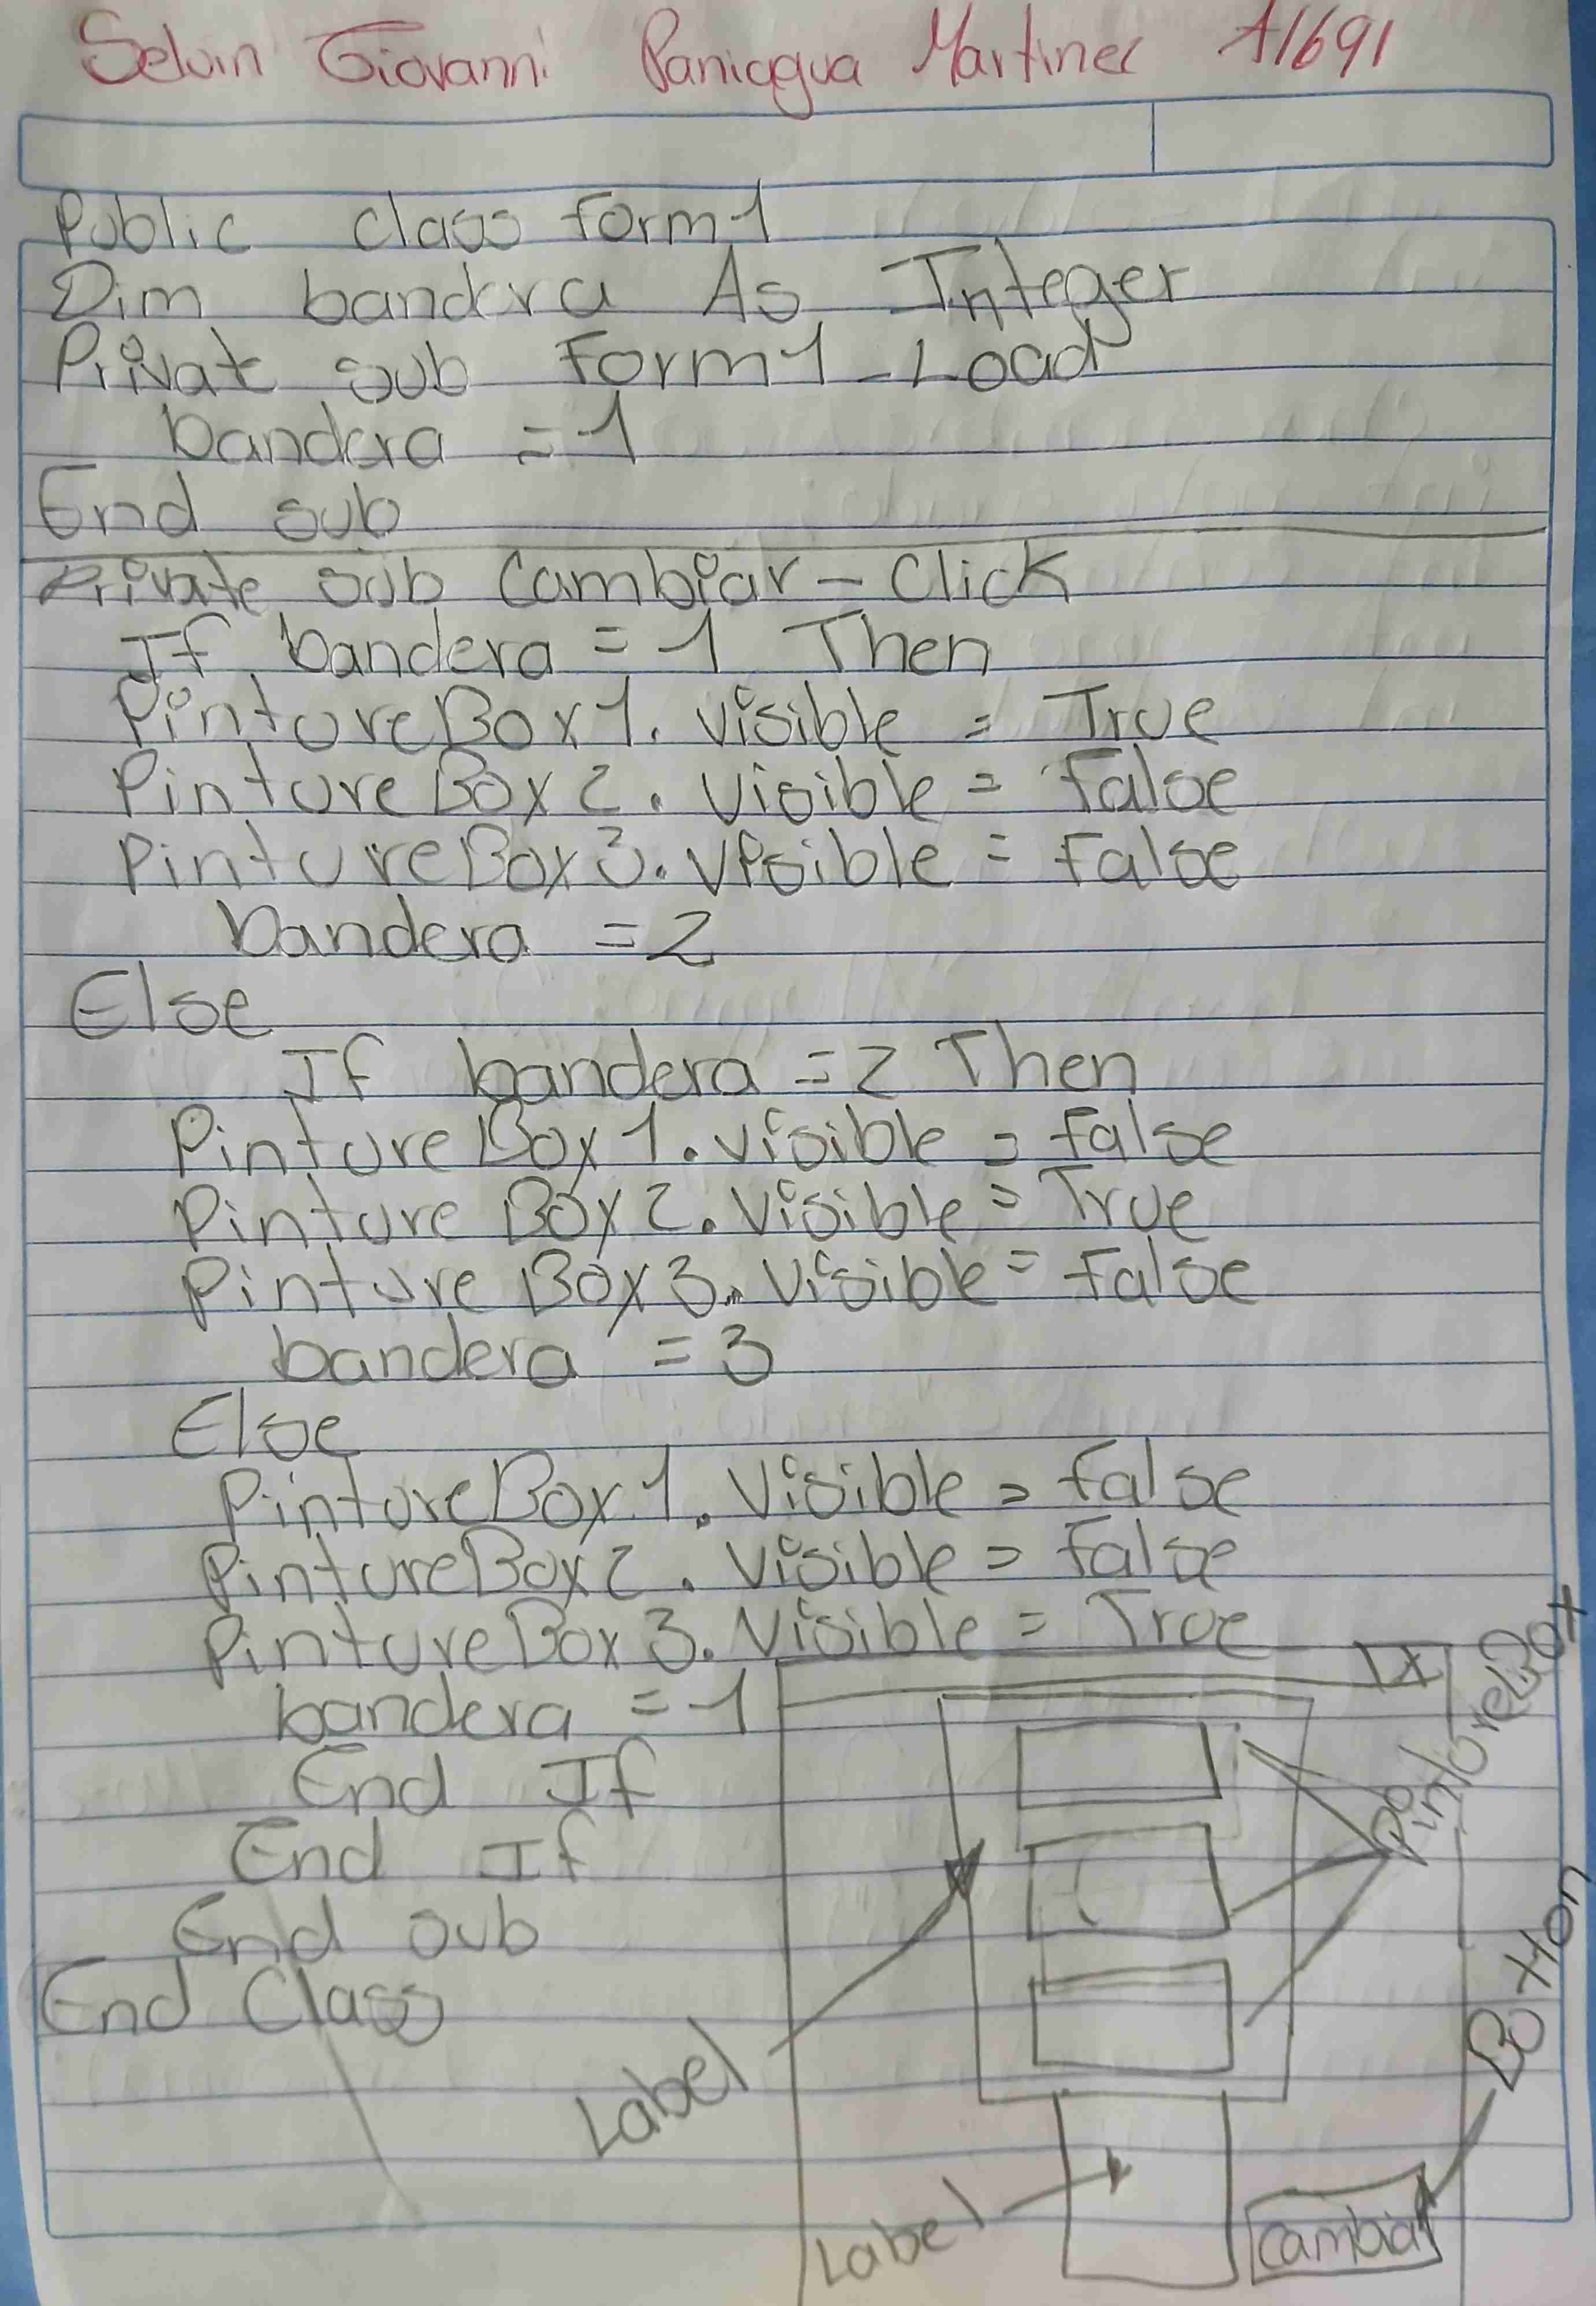 Selvin Giovanni Paniagua Martinez A1691
Public class form1
Dim bandera As Integer
Private sub Form1_Load
bandera = 1
End sub
Private sub Cambiar - Click
If bandera = 1 Then
PintureBox1. Visible = True
PintureBox2. Visible = False
PintureBox3. Visible = False
bandera = 2
Else
If bandera = 2 Then
PintureBox1. Visible = False
Pinture Box2. Visible = True
Pinture Box3. Visible = False
bandera = 3
Else
PintureBox1. Visible = False
PintureBox2. Visible = False
PintureBox3. Visible = True
bandera = 1
End If
End If
End sub
End Class
X
PintureBox
Label
Botton
Label
Cambiar